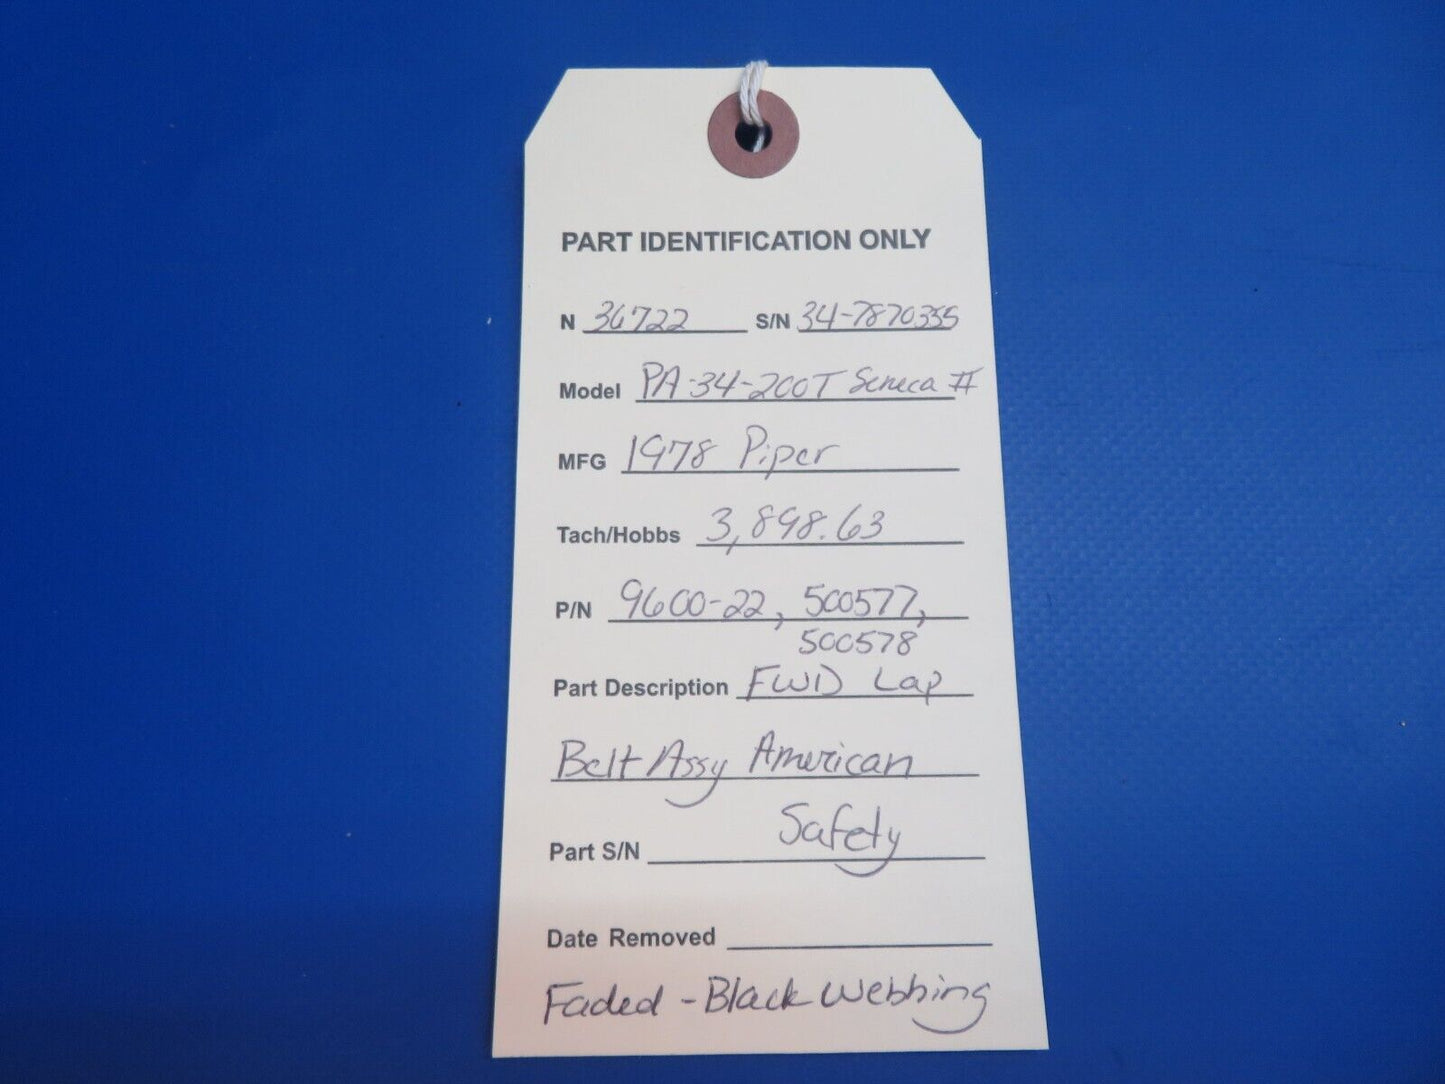 PART IDENTIFICATION ONLY
N 36722 S/N 34-7870355
Model PA-34-200T Seneca II
MFG 1978 Piper
Tach/Hobbs 3,898.63
P/N 9600-22, 500577,
500578
Part Description FWD Lap
Belt Assy American
Safety
Part S/N
Date Removed
Faded - Black Webbing